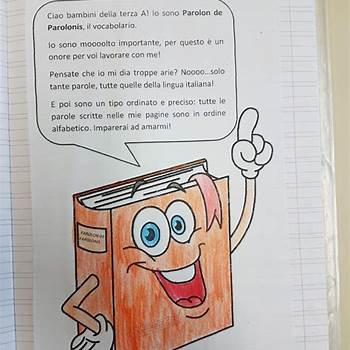 Ciao bambini della terza A! Io sono Parolon de
Parolonis, il vocabolario.
Io sono moooolto importante, per questo è un
onore per voi lavorare con me!
Pensate che io mi dia troppe arie? Noooo...solo
tante parole, tutte quelle della lingua italiana!
E poi sono un tipo ordinato e preciso: tutte le
parole scritte nelle mie pagine sono in ordine
alfabetico. Imparerai ad amarmi!
PAROLON DE
PAROLONIS